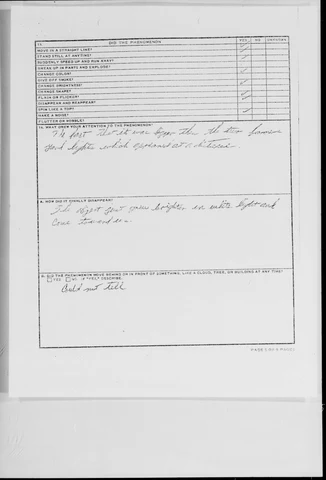 DID THE PHENOMENON YES NO UNKNOWN
MOVE IN A STRAIGHT LINE?
STAND STILL AT ANYTIME?
SUDDENLY SPEED UP AND RUN AWAY?
BREAK UP IN PARTS AND EXPLODE?
CHANGE COLOR?
GIVE OFF SMOKE?
CHANGE BRIGHTNESS?
CHANGE SHAPE?
FLASH OR FLICKER?
DISAPPEAR AND REAPPEAR?
SPIN LIKE A TOP?
MAKE A NOISE?
FLUTTER OR WOBBLE?
WHAT DREW YOUR ATTENTION TO THE PHENOMENON?
fact that it was bigger than the
lights which appeared at a distance
HOW DID IT FINALLY DISAPPEAR?
The object just grew brighter in white light and
DID THE PHENOMENON MOVE BEHIND OR IN FRONT OF SOMETHING, LIKE A CLOUD, TREE, OR BUILDING AT ANY TIME?
YES NO IF "YES," DESCRIBE.
Could not tell